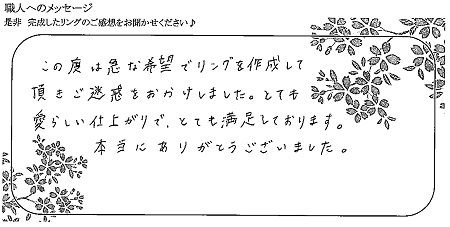 職人へのメッセージ
是非 完成したリングのご感想をお聞かせください♪
この度は急な希望でリングを作成して
頂きご迷惑をおかけしました。とても
愛らしい仕上がりで、とても満足しております。
本当にありがとうございました。